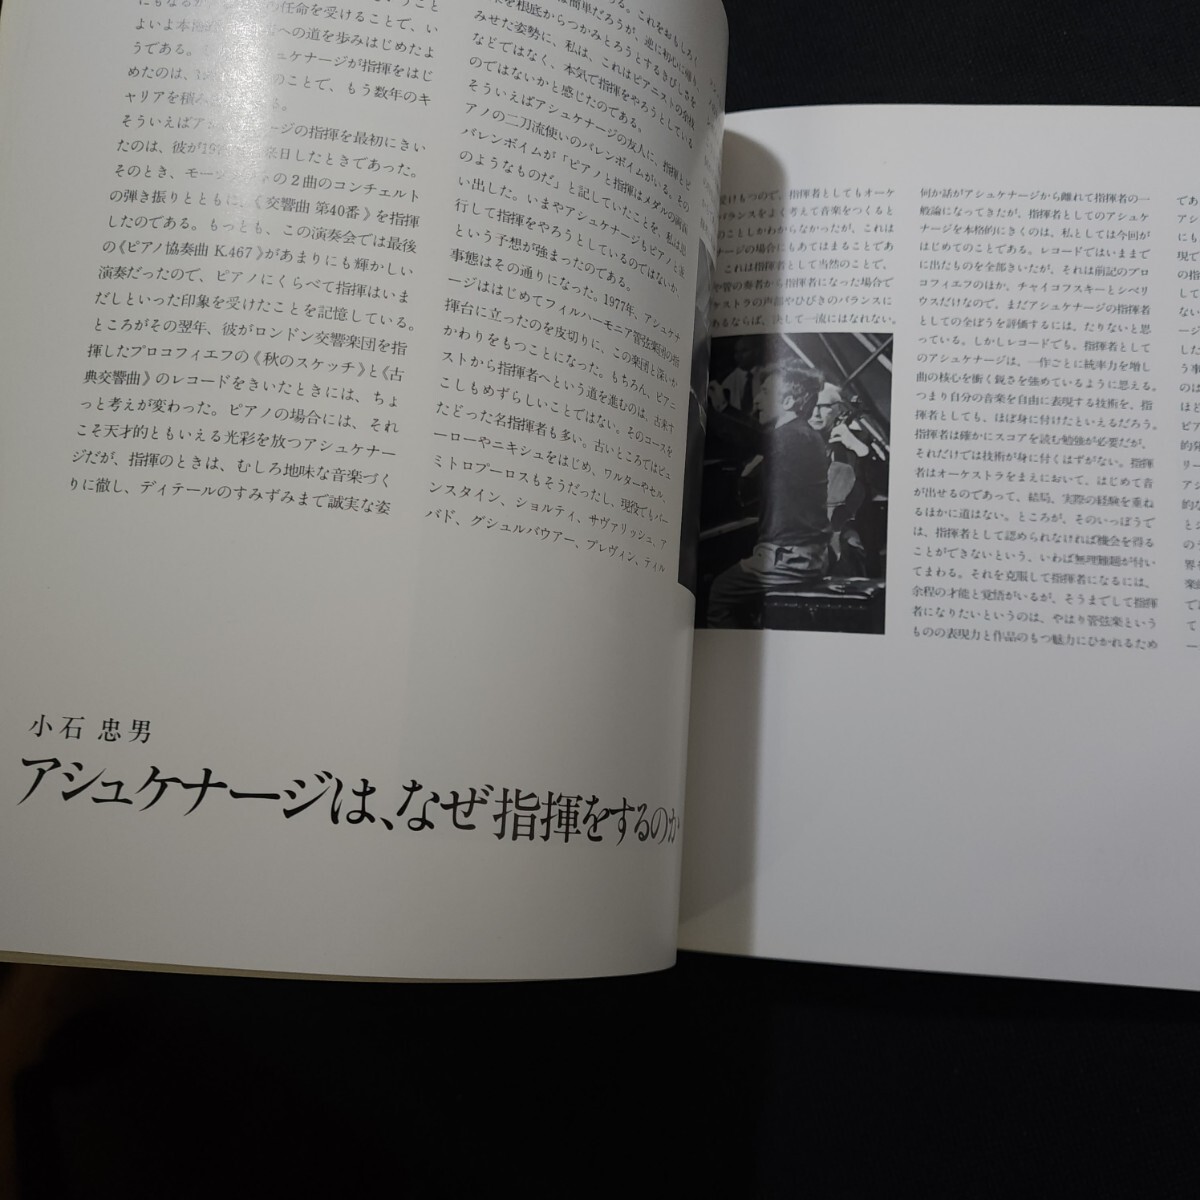 の任命を受けることで、い
よいよ本
への道を歩みはじめたよ
うである。
ュケナージが指揮をはじ
めたのは、
のことで、もう数年のキ
ャリアを積み
る。
そういえばア
ージの指揮を最初にきい
たのは、彼が
来日したときであった。
そのとき、モー
の2曲のコンチェルト
の弾き振りとともに、《交響曲 第40番》を指揮
したのである。もっとも、この演奏会では最後
の《ピアノ協奏曲 K.467》があまりにも輝かしい
演奏だったので、ピアノにくらべて指揮はいま
だしといった印象を受けたことを記憶している。
ところがその翌年、彼がロンドン交響楽団を指
揮したプロコフィエフの《秋のスケッチ》と《古
典交響曲》のレコードをきいたときには、ちょ
っと考えが変わった。ピアノの場合には、それ
こそ天才的ともいえる光彩を放つアシュケナー
ジだが、指揮のときは、むしろ地味な音楽づく
りに徹し、ディテールのすみずみまで誠実な姿
る。これをおもしろく
は簡単だろうが、逆に初心に帰り
を根底からつかみとろうとするきびしさを
みせた姿勢に、私は、これはピアニストの余技
などではなく、本気で指揮をやろうとしている
のではないかと感じたのである。
そういえばアシュケナージの友人に、指揮とピ
アノの二刀流使いのバレンボイムがいる。その
バレンボイムが「ピアノと指揮はメダルの両面
のようなものだ」と記していたことを、私は思
い出した。いまやアシュケナージもピアノと並
行して指揮をやろうとしているのではないか
という予想が強まったのである。
事態はその通りになった。1977年、アシュケナ
ージははじめてフィルハーモニア管弦楽団の指
揮台に立ったのを皮切りに、この楽団と深いか
かわりをもつことになった。もちろん、ピアニ
ストから指揮者へという道を進むのは、古来す
こしもめずらしいことではない。そのコースを
たどった名指揮者も多い。古いところではビュ
ーローやニキシュをはじめ、ワルターやセル、
ミトロプーロスもそうだったし、現役でもバー
ンスタイン、ショルティ、サヴァリッシュ、ア
バド、グシュルバウアー、プレヴィン、ティル
小石 忠男
アシュケナージは、なぜ指揮をするのか
受けもつので、指揮者としてもオーケ
バランスをよく考えて音楽をつくると
のことしかわからなかったが、これは
ージの場合にもあてはまることであ
これは指揮者として当然のことで、
や管の奏者から指揮者になった場合で
ケストラの声部やひびきのバランスに
あるならば、決して一流にはなれない。
何か話がアシュケナージから離れて指揮者の一
般論になってきたが、指揮者としてのアシュケ
ナージを本格的にきくのは、私としては今回が
はじめてのことである。レコードではいままで
に出たものを全部きいたが、それは前記のプロ
コフィエフのほか、チャイコフスキーとシベリ
ウスだけなので、まだアシュケナージの指揮者
としての全ぼうを評価するには、たりないと思
っている。しかしレコードでも、指揮者として
のアシュケナージは、一作ごとに統率力を増し
曲の核心を衝く鋭さを強めているように思える。
つまり自分の音楽を自由に表現する技術を、指
揮者としても、ほぼ身に付けたといえるだろう。
指揮者は確かにスコアを読む勉強が必要だが、
それだけでは技術が身に付くはずがない。指揮
者はオーケストラをまえにおいて、はじめて音
が出せるのであって、結局、実際の経験を重ね
るほかに道はない。ところが、そのいっぽうで
は、指揮者として認められなければ機会を得る
ことができないという、いわば無理難題が付い
てまわる。それを克服して指揮者になるには、
余程の才能と覚悟がいるが、そうまでして指揮
者になりたいというのは、やはり管弦楽という
ものの表現力と作品のもつ魅力にひかれるため